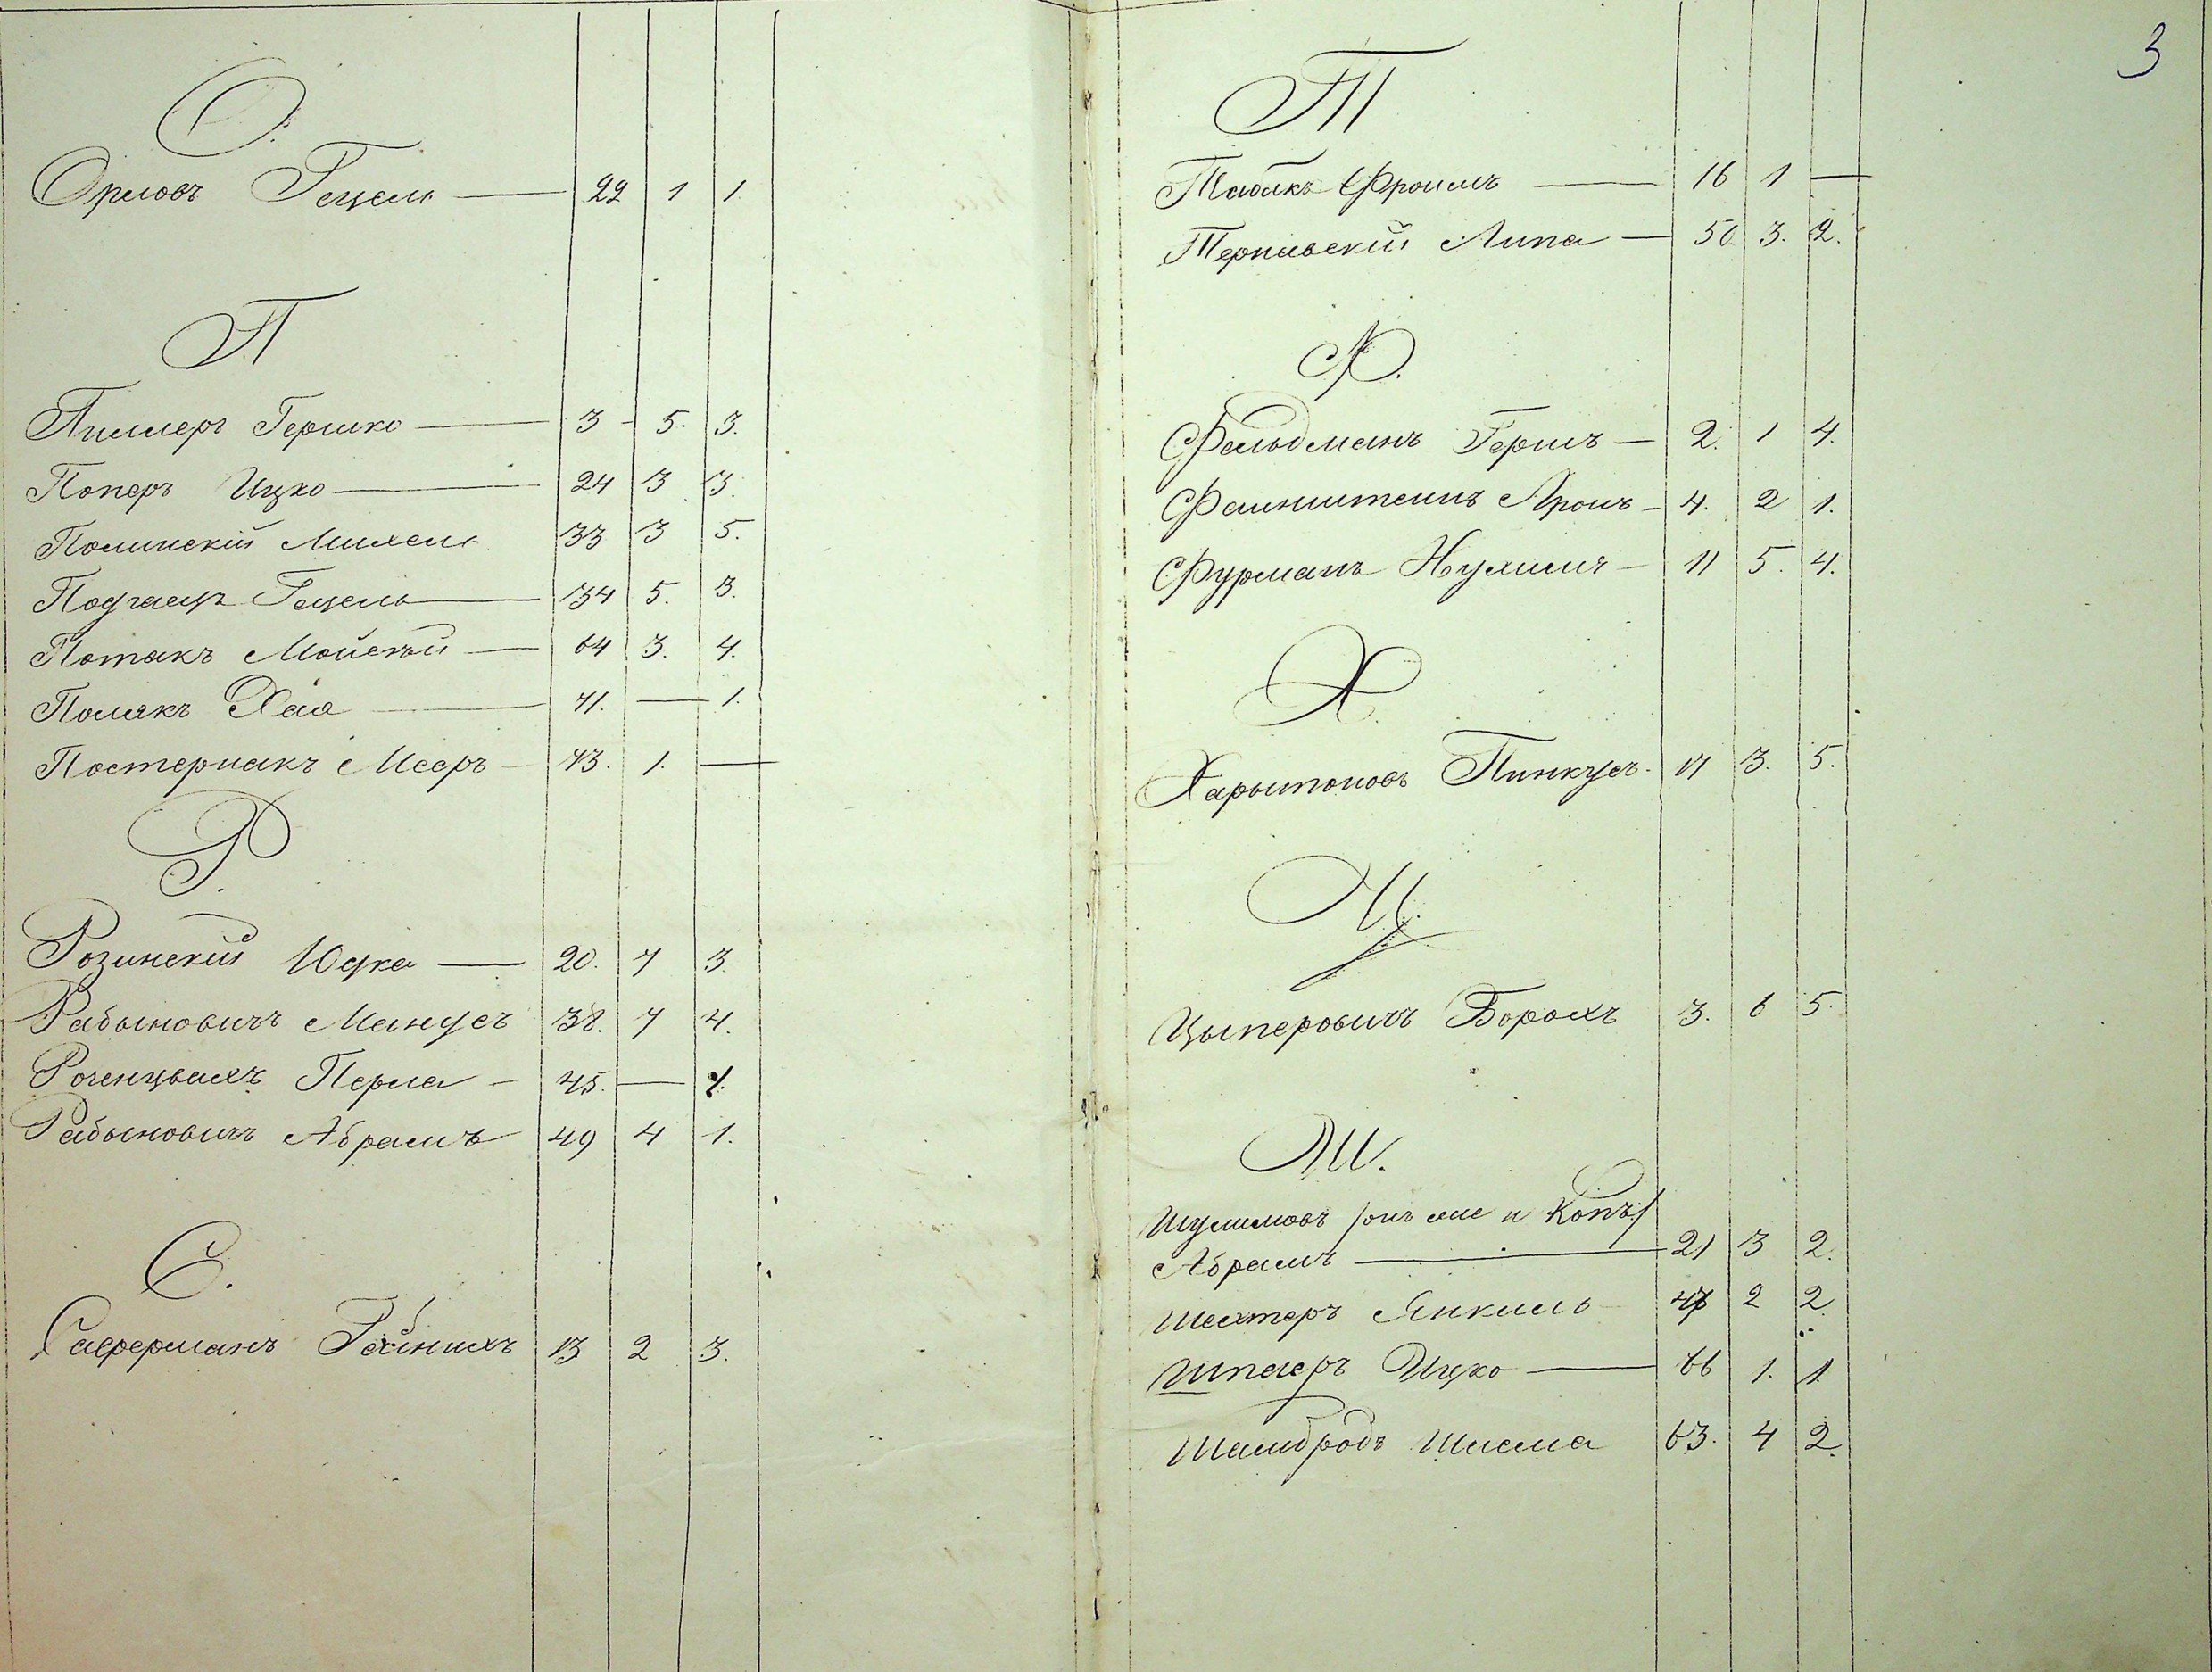 О.
Орловъ Гецель — 22 1 1.
П
Пиллеръ Гершко — 3 - 5. 3.
Поперъ Ицко — 24 3 3.
Полинскій Михель 33 3 5.
Подгаецъ Гецель — 34 5. 3.
Потакъ Мойсей — 64 3. 4.
Полякъ Хая — 71. — 1.
Постернакъ Мееръ — 73. 1. —
Р.
Розинскій Юдка — 20. 7 3.
Рабыновичъ Манусъ 38. 7 4.
Роченцвахъ Перла — 45. — 1.
Рабыновичъ Абрамъ 49 4 1.
С.
Саферманъ 13 2 3.
3
Т
Табакъ Фроимъ — 16 1 —
Терпавскій Липа — 50 3. 2.
Ф.
Фельдманъ Гершъ — 2. 1 4.
Файнштеинъ Аронъ — 4. 2 1.
Фурманъ Нухимъ — 11 5. 4.
Х.
Харытоновъ Пинкусъ. 17 3. 5.
Ц
Цыперовичъ Борохъ 3. 6 5.
Ш.
Шулимовъ /онъ же и Копъ/
Абрамъ — 21 3 2.
Шехтеръ Янкель 47 2 2.
Шпаеръ Ицко — 66 1. 1.
Шамбродъ Шлема 63. 4 2.